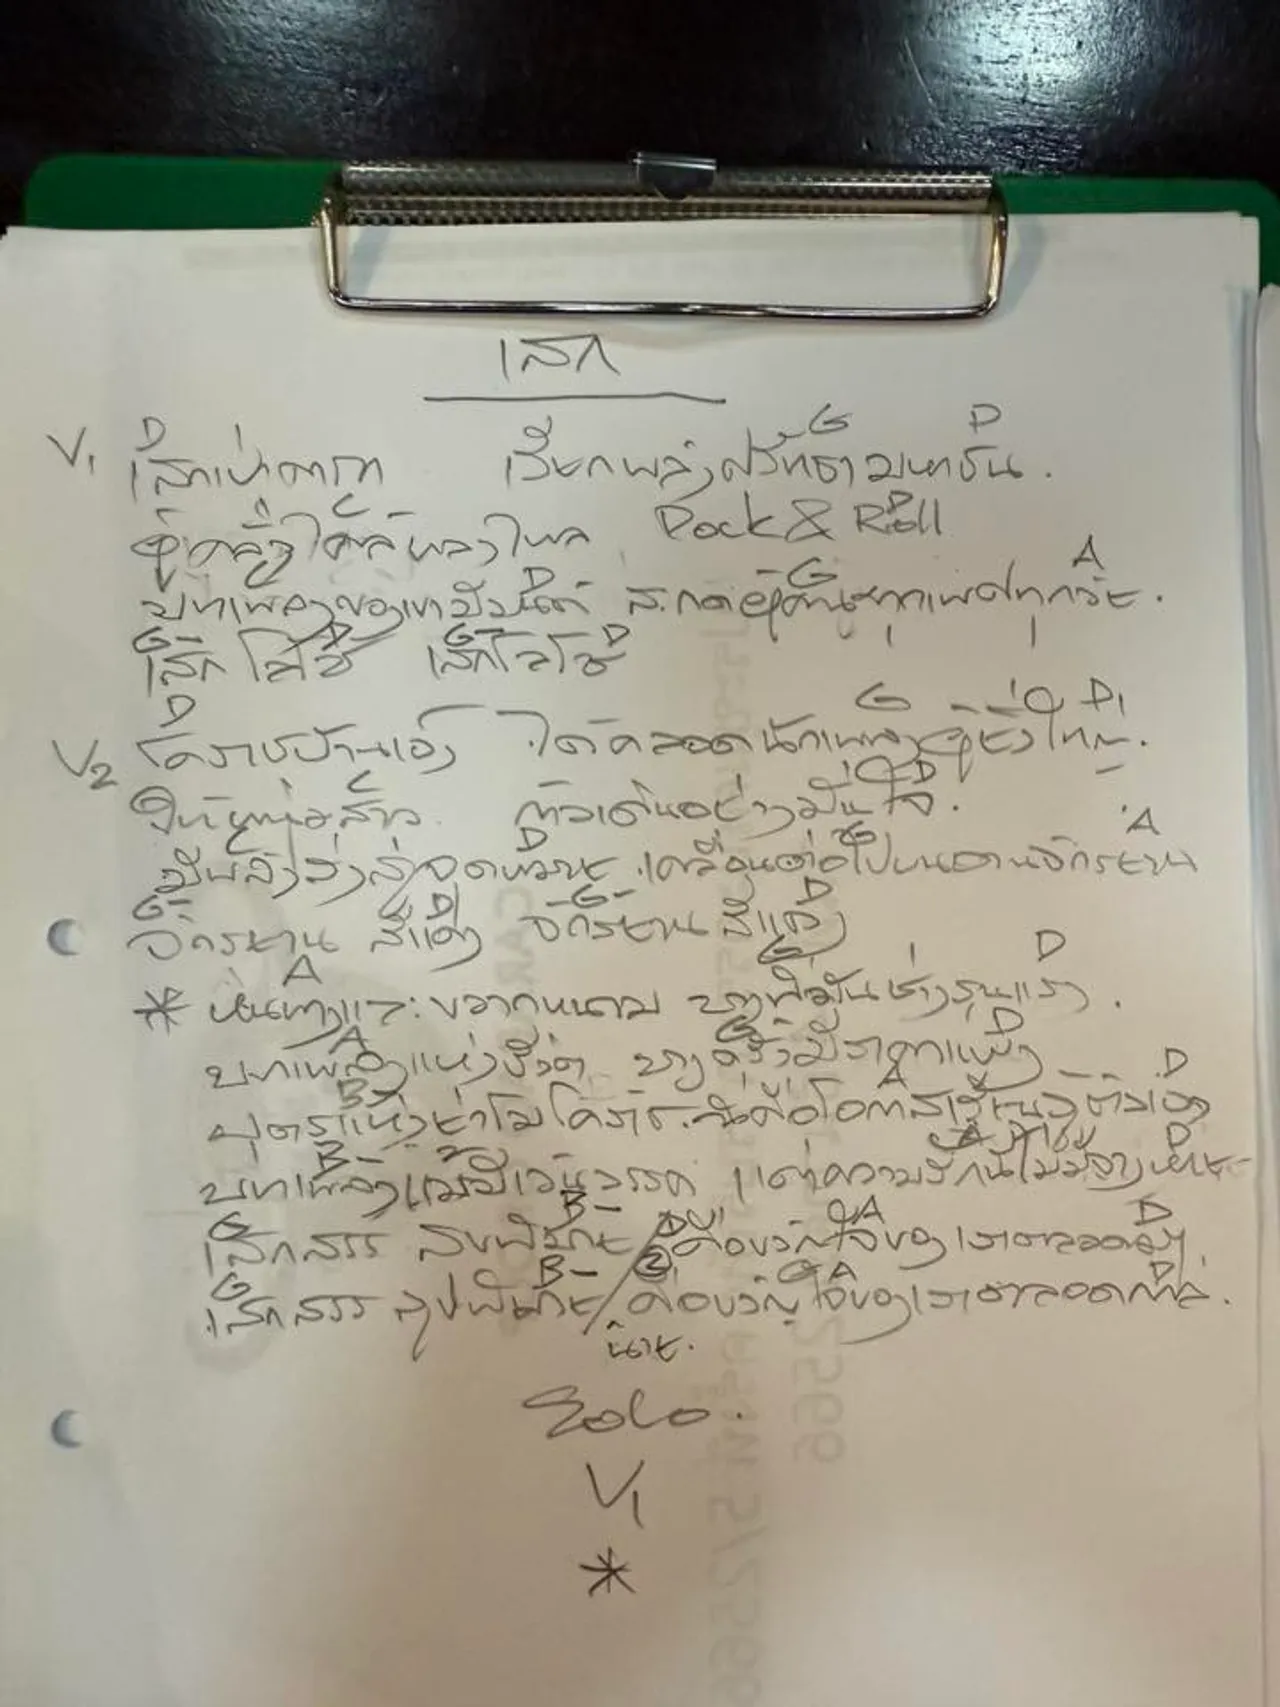 เสก
V1 D G D
เสกเป่าคาถา เรียกพลังศรัทธามหาชน.
C D
ผู้คลั่งไคล้หลงใหล Rock & Roll
D G A
บทเพลงของเขา สะกดผู้คนทุกเพศทุกวัย.
G D G D
เสกโลโซ เสกโลโซ
V2 D G D
โคราชบ้านเอง ได้คลอดนักเพลงผู้ยิ่งใหญ่.
C D
ให้หนุ่มสาว ก้าวเดินอย่างมั่นใจ.
D G A
มีพลังส่งสู่จุดหมาย เคลื่อนต่อไปบนลานจักรยาน
G D G D
จักรยาน สีแดง จักรยาน สีแดง
A G D
* หนทางและขวากหนาม บางทีมันช่างรุนแรง.
A G D
บทเพลงแห่งชีวิต บางครั้งมีราคาแพง
B- A D
บุตรแห่งย่าโมโคราช นี่คือโอกาส ตัวเอง
B- A D
บทเพลงแม้มีเว้นวรรค แต่ความรักนี้ไม่มีจางหาย
G B- D A D
เสกสรร ศุขพิมาย / คือขวัญใจของเราตลอด
G B- 2 G A D
เสกสรร ศุขพิมาย / คือขวัญใจของเราตลอดกาล.
นาย.
Solo.
V1
*